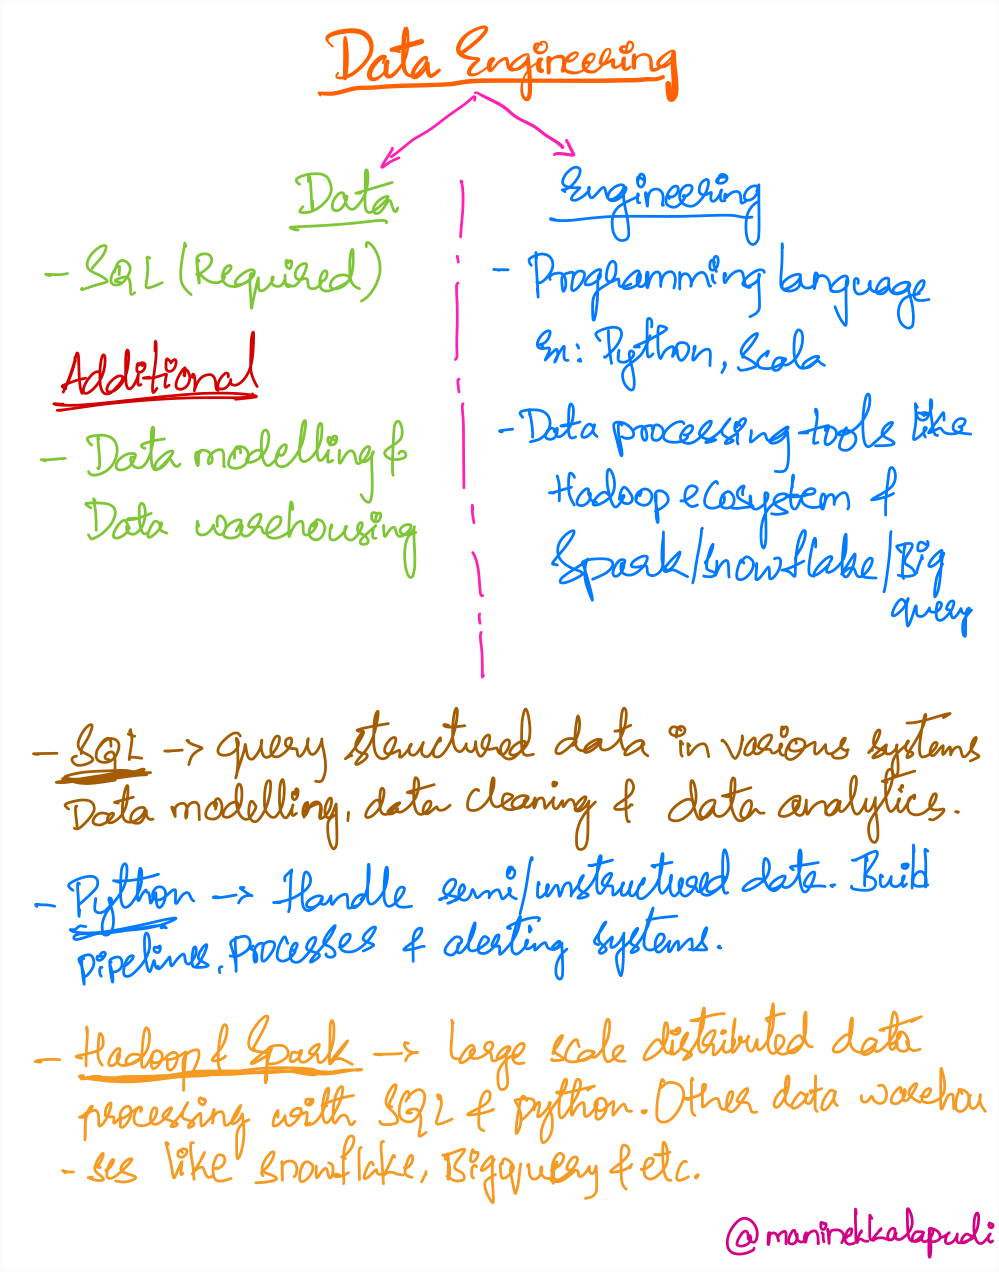 Data Engineering
Data
- SQL (Required)
Additional
- Data modelling &
Data warehousing
Engineering
- Programming language
Ex: Python, Scala
- Data processing tools like
Hadoop ecosystem &
Spark/snowflake/Big
query
- SQL -> query structured data in various systems
Data modelling, data cleaning & data analytics.
- Python -> Handle semi/unstructured data. Build
pipelines, processes & alerting systems.
- Hadoop & Spark -> Large scale distributed data
processing with SQL & python. Other data warehou
- ses like snowflake, Bigquery & etc.
@maninekkalapudi